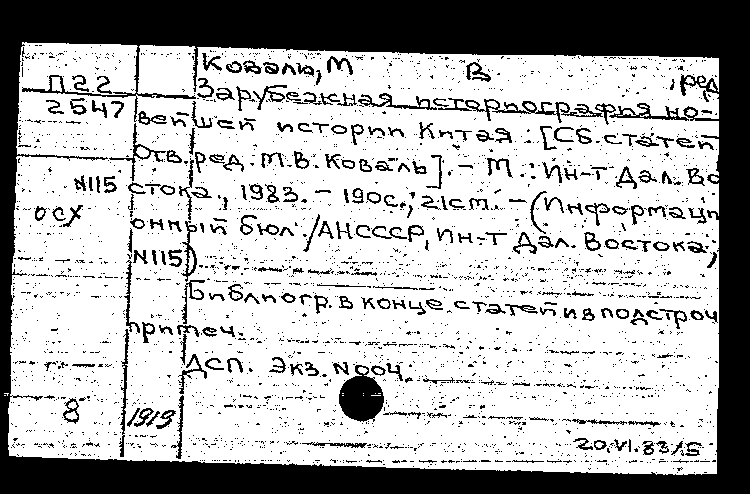 Коваль, М В , ред
П22
Зарубежная историография но-
2547
вейшей истории Китая : [Сб. статей
Отв. ред. М.В. Коваль]. – М. : Ин-т Дал. Во
N115
стока, 1983. – 190с.; 21см. – (Информаци
осх
онный бюл. /АНСССР, Ин-т Дал. Востока;
N115).
Библиогр. в конце статей и в подстроч
примеч.
ДСП. Экз. N004
8 1919
20.VI.83/5